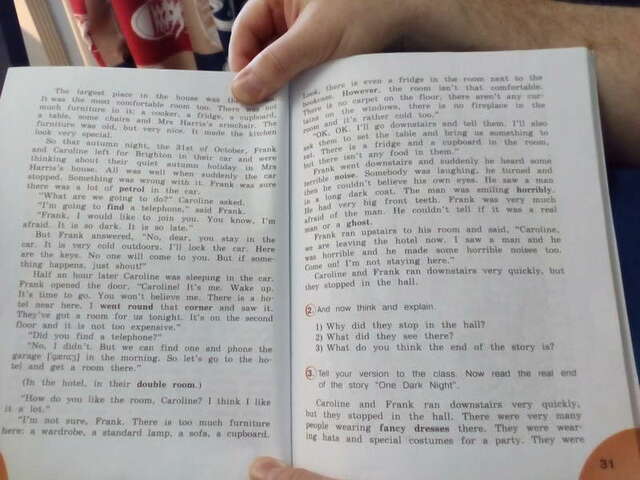 The largest place in the house was the
It was the most comfortable room too. There was not
much furniture in it: a cooker, a fridge, a cupboard,
a table, some chairs and Mrs Harris's armchair. The
furniture was old, but very nice. It made the kitchen
look very special.
So that autumn night, the 31st of October, Frank
and Caroline left for Brighton in their car and were
thinking about their quiet autumn holiday in Mrs
Harris's house. All was well when suddenly the car
stopped. Something was wrong with it. Frank was sure
there was a lot of petrol in the car.
"What are we going to do?" Caroline asked.
"I'm going to find a telephone," said Frank.
"Frank, I would like to join you. You know, I'm
afraid. It is so dark. It is so late."
But Frank answered, "No, dear, you stay in the
car. It is very cold outdoors. I'll lock the car. Here
are the keys. No one will come to you. But if some-
thing happens, just shout!"
Half an hour later Caroline was sleeping in the car.
Frank opened the door. "Caroline! It's me. Wake up.
It's time to go. You won't believe me. There is a ho-
tel near here. I went round that corner and saw it.
They've got a room for us tonight. It's on the second
floor and it is not too expensive."
"Did you find a telephone?"
"No, I didn't. But we can find one and phone the
garage [ˈgærɑːʒ] in the morning. So let's go to the ho-
tel and get a room there."
(In the hotel, in their double room.)
"How do you like the room, Caroline? I think I like
it a lot."
"I'm not sure, Frank. There is too much furniture
here: a wardrobe, a standard lamp, a sofa, a cupboard.
Look, there is even a fridge in the room next to the
bookcase. However, the room isn't that comfortable.
There is no carpet on the floor, there aren't any cur-
tains on the windows, there is no fireplace in the
room and it's rather cold too."
"OK, OK. I'll go downstairs and tell them. I'll also
ask them to set the table and bring us something to
eat. There is a fridge and a cupboard in the room,
but there isn't any food in them."
Frank went downstairs and suddenly he heard some
terrible noise. Somebody was laughing, he turned and
then he couldn't believe his own eyes. He saw a man
in a long dark coat. The man was smiling horribly.
He had very big front teeth. Frank was very much
afraid of the man. He couldn't tell if it was a real
man or a ghost.
Frank ran upstairs to his room and said, "Caroline,
we are leaving the hotel now. I saw a man and he
was horrible and he made some horrible noises too.
Come on! I'm not staying here."
Caroline and Frank ran downstairs very quickly, but
they stopped in the hall.
2. And now think and explain.
1) Why did they stop in the hall?
2) What did they see there?
3) What do you think the end of the story is?
3. Tell your version to the class. Now read the real end
of the story "One Dark Night".
Caroline and Frank ran downstairs very quickly,
but they stopped in the hall. There were very many
people wearing fancy dresses there. They were wear-
ing hats and special costumes for a party. They were
31